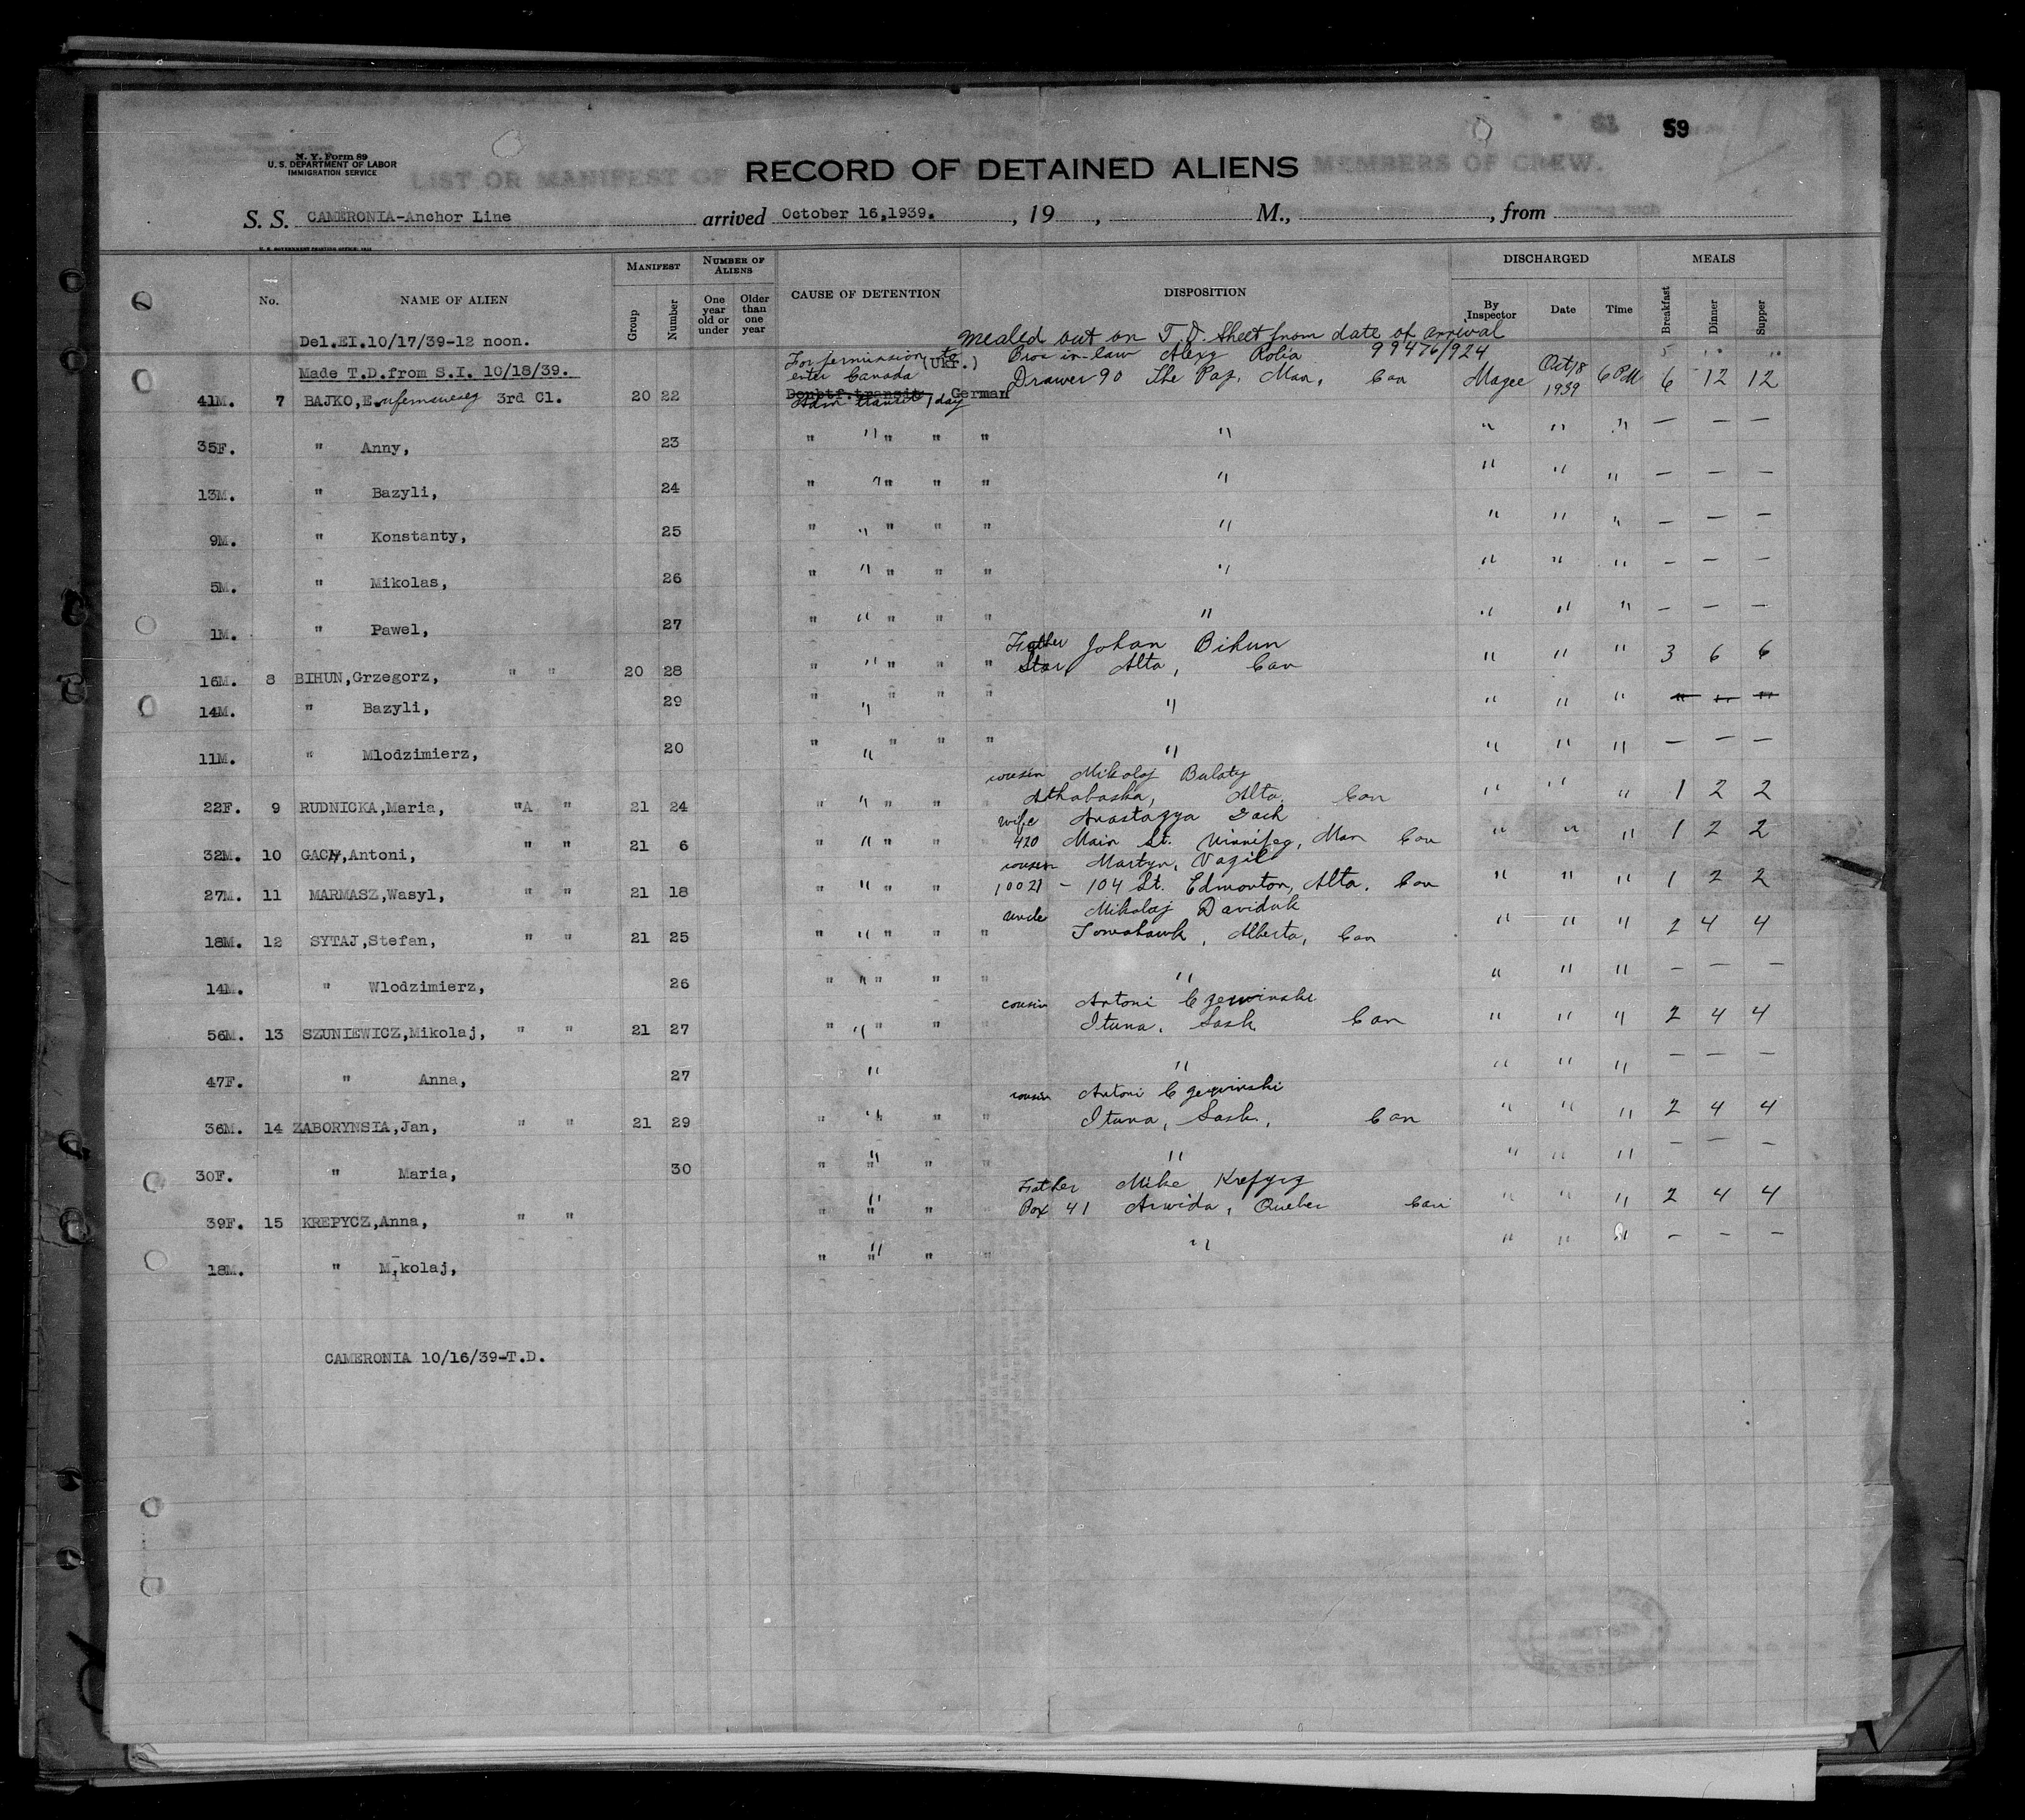 59
N. Y. Form 89
U. S. DEPARTMENT OF LABOR
IMMIGRATION SERVICE
LIST OR MANIFEST OF
RECORD OF DETAINED ALIENS
MEMBERS OF CREW.
S. S. CAMERONIA-Anchor Line arrived October 16,1939. , 19 , M., , from
MANIFEST NUMBER OF ALIENS DISCHARGED MEALS
No. NAME OF ALIEN Group Number One year old or under Older than one year CAUSE OF DETENTION DISPOSITION By Inspector Date Time Breakfast Dinner Supper
Del.EI.10/17/39-12 noon. mealed out on T.D. Sheet from date of arrival
Made T.D.from S.I. 10/18/39. For permission to enter Canada (Ukr.) Bro in-law Alexy Rolia 99476/924
41M. 7 BAJKO,E 3rd Cl. 20 22 Doubtf.transit German Adm transit 1 day Drawer 90 The Pas, Man, Can Magee Oct/18 1939 6PM 6 12 12
35F. " Anny, 23 " " " " " " " " " — — —
13M. " Bazyli, 24 " " " " " " " " " — — —
9M. " Konstanty, 25 " " " " " " " " " — — —
5M. " Mikolas, 26 " " " " " " " " " — — —
1M. " Pawel, 27 " " " " " " " " " — — —
Father Johan Bihun
16M. 8 BIHUN,Grzegorz, " " 20 28 " " " " " Star Alta, Can " " " 3 6 6
14M. " Bazyli, 29 " " " " " " " " " " " "
11M. " Mlodzimierz, 20 " " " " " " " " " — — —
cousin Mikolaj Bulaty
22F. 9 RUDNICKA,Maria, "A " 21 24 " " " " Athabaska, Alta. Can " " " 1 2 2
wife Anastazya Gach
32M. 10 GACH,Antoni, " " 21 6 " " " " 420 Main St. Winnipeg, Man Can " " " 1 2 2
cousin Martyn, Vazil
27M. 11 MARMASZ,Wasyl, " " 21 18 " " " " 10021 - 104 St. Edmonton, Alta. Can " " " 1 2 2
uncle Mikolaj Daviduk
18M. 12 SYTAJ,Stefan, " " 21 25 " " " " " Tomahawk, Alberta, Can " " " 2 4 4
14M. " Wlodzimierz, 26 " " " " " " " " " — — —
cousin Antoni Czerwinski
56M. 13 SZUNIEWICZ,Mikolaj, " " 21 27 " " " " Ituna, Sask Can " " " 2 4 4
47F. " Anna, 27 " " " " " — — —
cousin Antoni Czerwinski
36M. 14 ZABORYNSIA,Jan, " " 21 29 " " " " Ituna, Sask, Can " " " 2 4 4
30F. " Maria, 30 " " " " " " " " " — — —
Father Mike Krepycz
39F. 15 KREPYCZ,Anna, " " " " " " Box 41 Arvida, Quebec Can " " " 2 4 4
18M. " Mikolaj, " " " " " " " " " — — —
CAMERONIA 10/16/39-T.D.